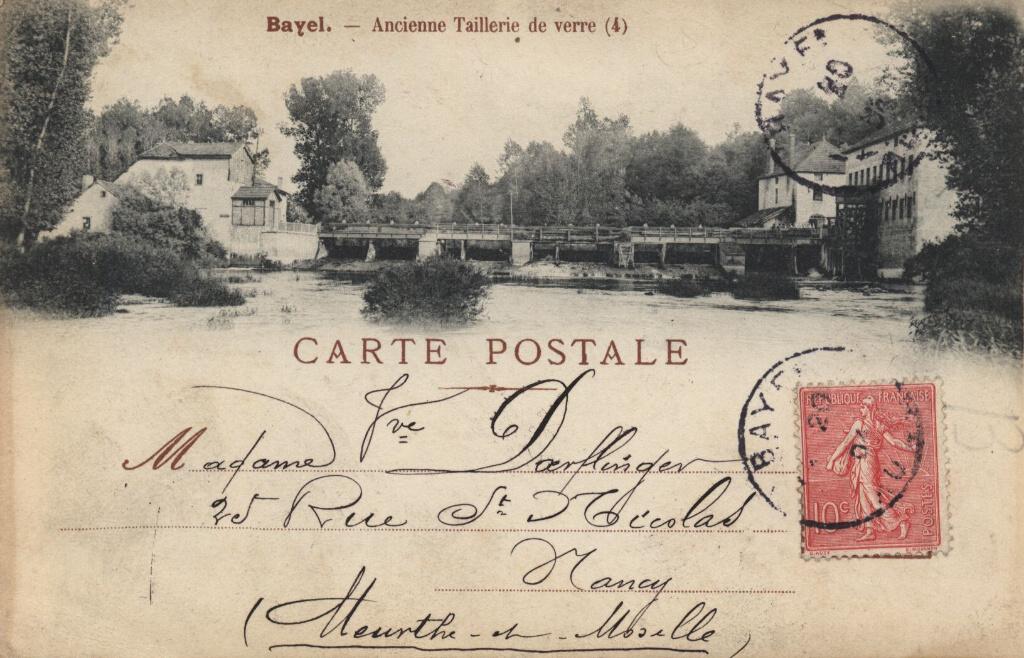 Bayel. — Ancienne Taillerie de verre (4)
BAYEL
20
CARTE POSTALE
Madame Vve Dœrflinger
25 Rue St Nicolas
Nancy
(Meurthe-et-Moselle)
BAYEL
20
REPUBLIQUE FRANÇAISE
10c
POSTES